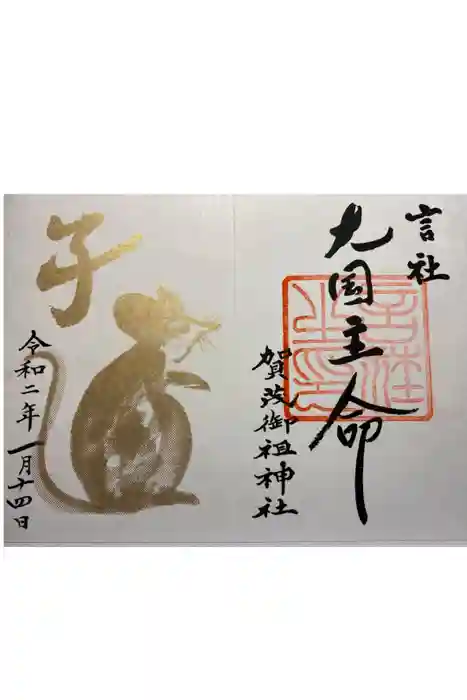 言社
大国主命
賀茂御祖神社
言社
之印
子
令和二年一月十四日